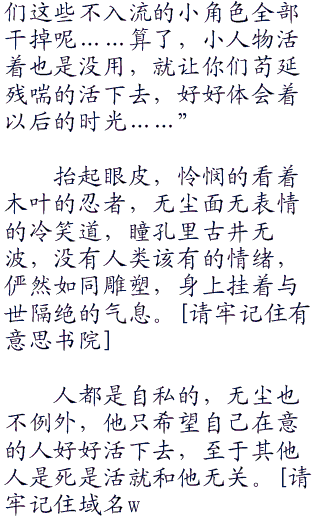 们这些不入流的小角色全部
干掉呢……算了，小人物活
着也是没用，就让你们苟延
残喘的活下去，好好体会着
以后的时光……”
抬起眼皮，怜悯的看着
木叶的忍者，无尘面无表情
的冷笑道，瞳孔里古井无
波，没有人类该有的情绪，
俨然如同雕塑，身上挂着与
世隔绝的气息。[请牢记住有
意思书院]
人都是自私的，无尘也
不例外，他只希望自己在意
的人好好活下去，至于其他
人是死是活就和他无关。[请
牢记住域名w